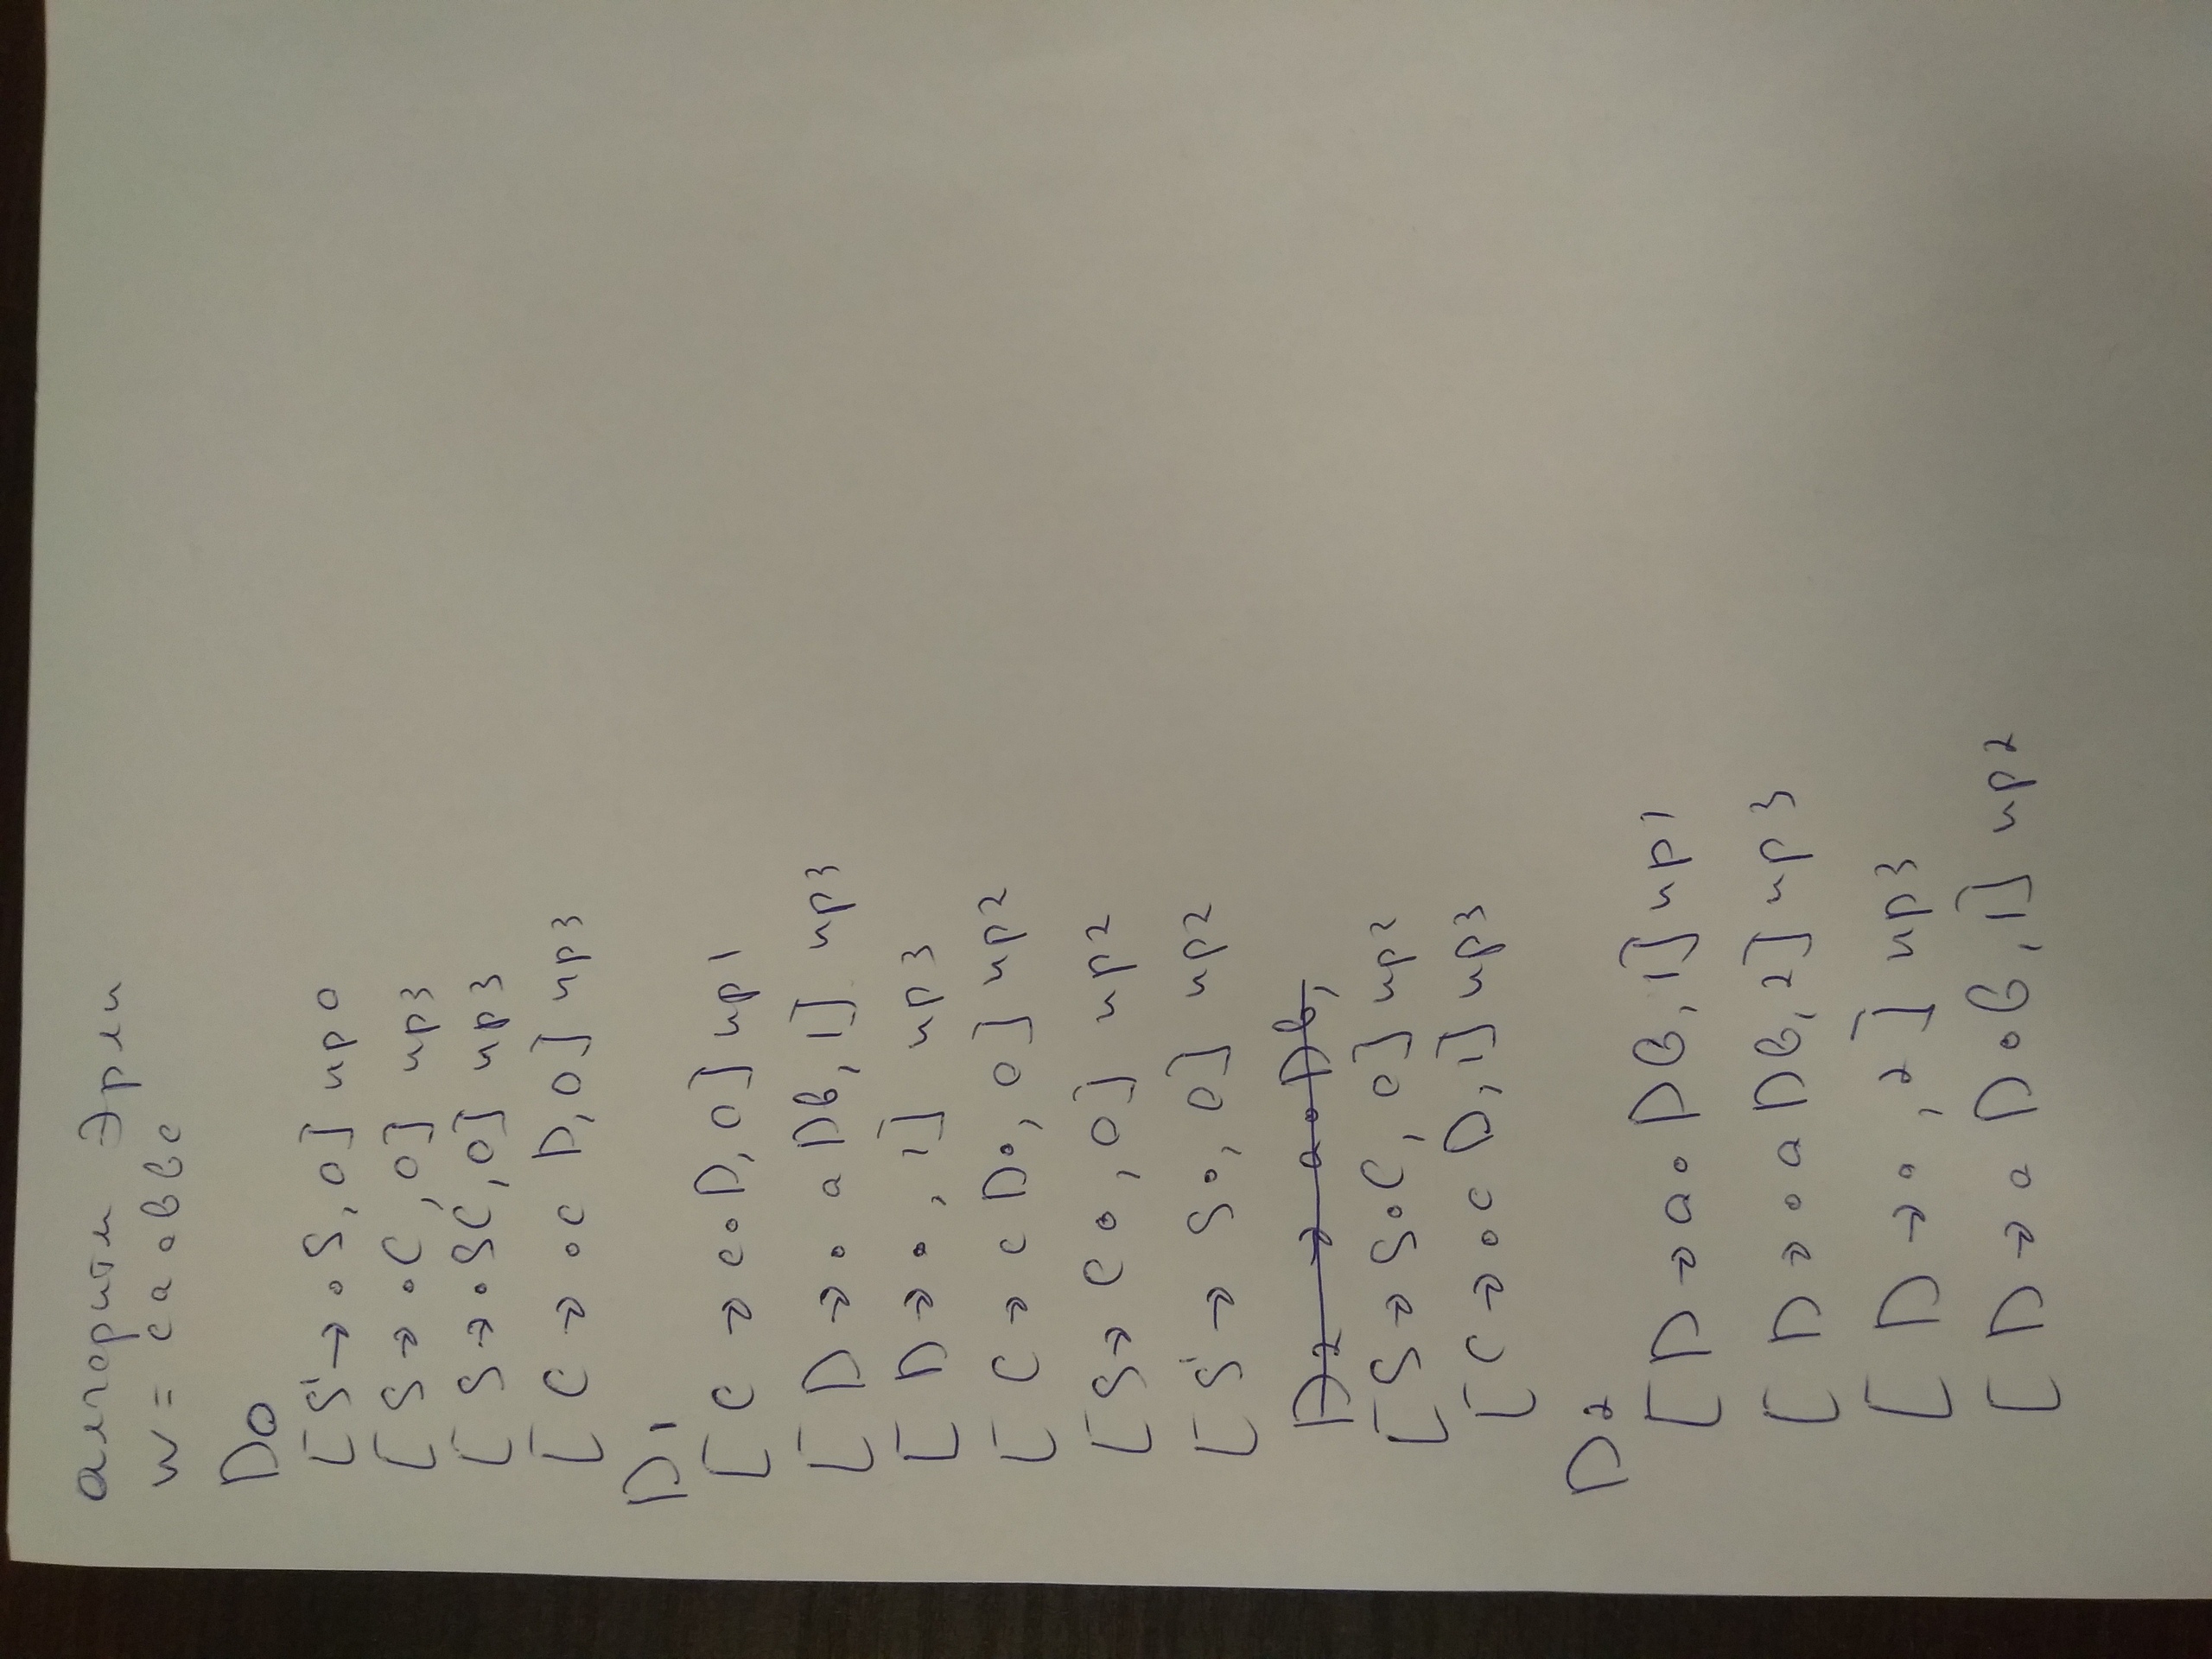 алгоритм Эрли
w = c a a b b c
D0
[S' → •S, 0] пр 0
[S → •C, 0] пр3
[S → •SC, 0] пр3
[C → •c D, 0] пр3
D1
[C → c•D, 0] пр1
[D → •a Db, 1] пр3
[D → •, 1] пр3
[C → c D•, 0] пр2
[S → C•, 0] пр2
[S' → S•, 0] пр2
D2 → a•Db,
[S → S•C, 0] пр2
[C → •c D, 1] пр3
D2
[D → a• Db, 1] пр1
[D → •a Db, 2] пр3
[D → •, 2] пр3
[D → a D•b, 1] пр2